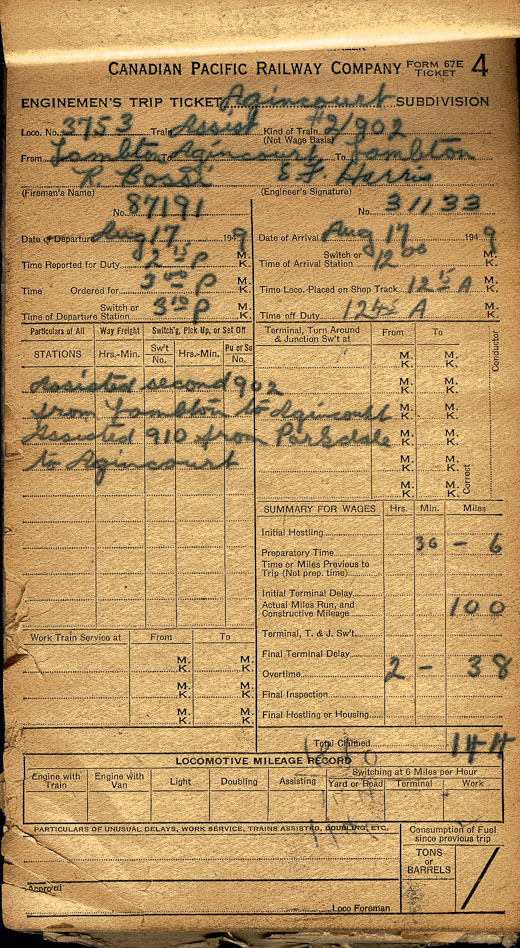 CANADIAN PACIFIC RAILWAY COMPANY FORM 67E TICKET 4
ENGINEMEN'S TRIP TICKET Agincourt SUBDIVISION
Loco. No. 3753 Train Assist Kind of Train (Not Wage Basis) #2/902
From Lambton To Agincourt To Lambton
(Fireman's Name) E F Harris (Engineer's Signature)
No. 87191 No. 31133
Date of Departure Aug 17 1949 Date of Arrival Aug 17 1949
Time Reported for Duty 2 15 P M. K. Switch or Time of Arrival Station 12 00 M. K.
Time Ordered for P M. K. Time Loco. Placed on Shop Track 12 15 A M. K.
Switch or Time of Departure Station 3 10 P M. K. Time off Duty 12 45 A M. K.
Particulars of All Way Freight Switch'g, Pick Up, or Set Off Terminal, Turn Around & Junction Sw't at From To
STATIONS Hrs.-Min. Sw't No. Hrs.-Min. Pu or So No. M. K. M. K. Conductor
Assisted second 902 M. K. M. K.
from Lambton to Agincourt M. K. M. K.
Assisted 910 from Parkdale M. K. M. K.
to Agincourt M. K. M. K. Correct
M. K. M. K.
SUMMARY FOR WAGES Hrs. Min. Miles
Initial Hostling
Preparatory Time 30 - 6
Time or Miles Previous to Trip (Not prep. time)
Initial Terminal Delay
Actual Miles Run, and Constructive Mileage 100
Terminal, T. & J. Sw't.
Final Terminal Delay
Overtime 2 - 38
Final Inspection
Final Hostling or Housing
Total Claimed 144
Work Train Service at From To
M. K. M. K.
M. K. M. K.
M. K. M. K.
LOCOMOTIVE MILEAGE RECORD
Engine with Train Engine with Van Light Doubling Assisting Switching at 6 Miles per Hour
Yard or Road Terminal Work
PARTICULARS OF UNUSUAL DELAYS, WORK SERVICE, TRAINS ASSISTED, DOUBLING, ETC. Consumption of Fuel since previous trip
TONS or BARRELS
Approved
Loco Foreman